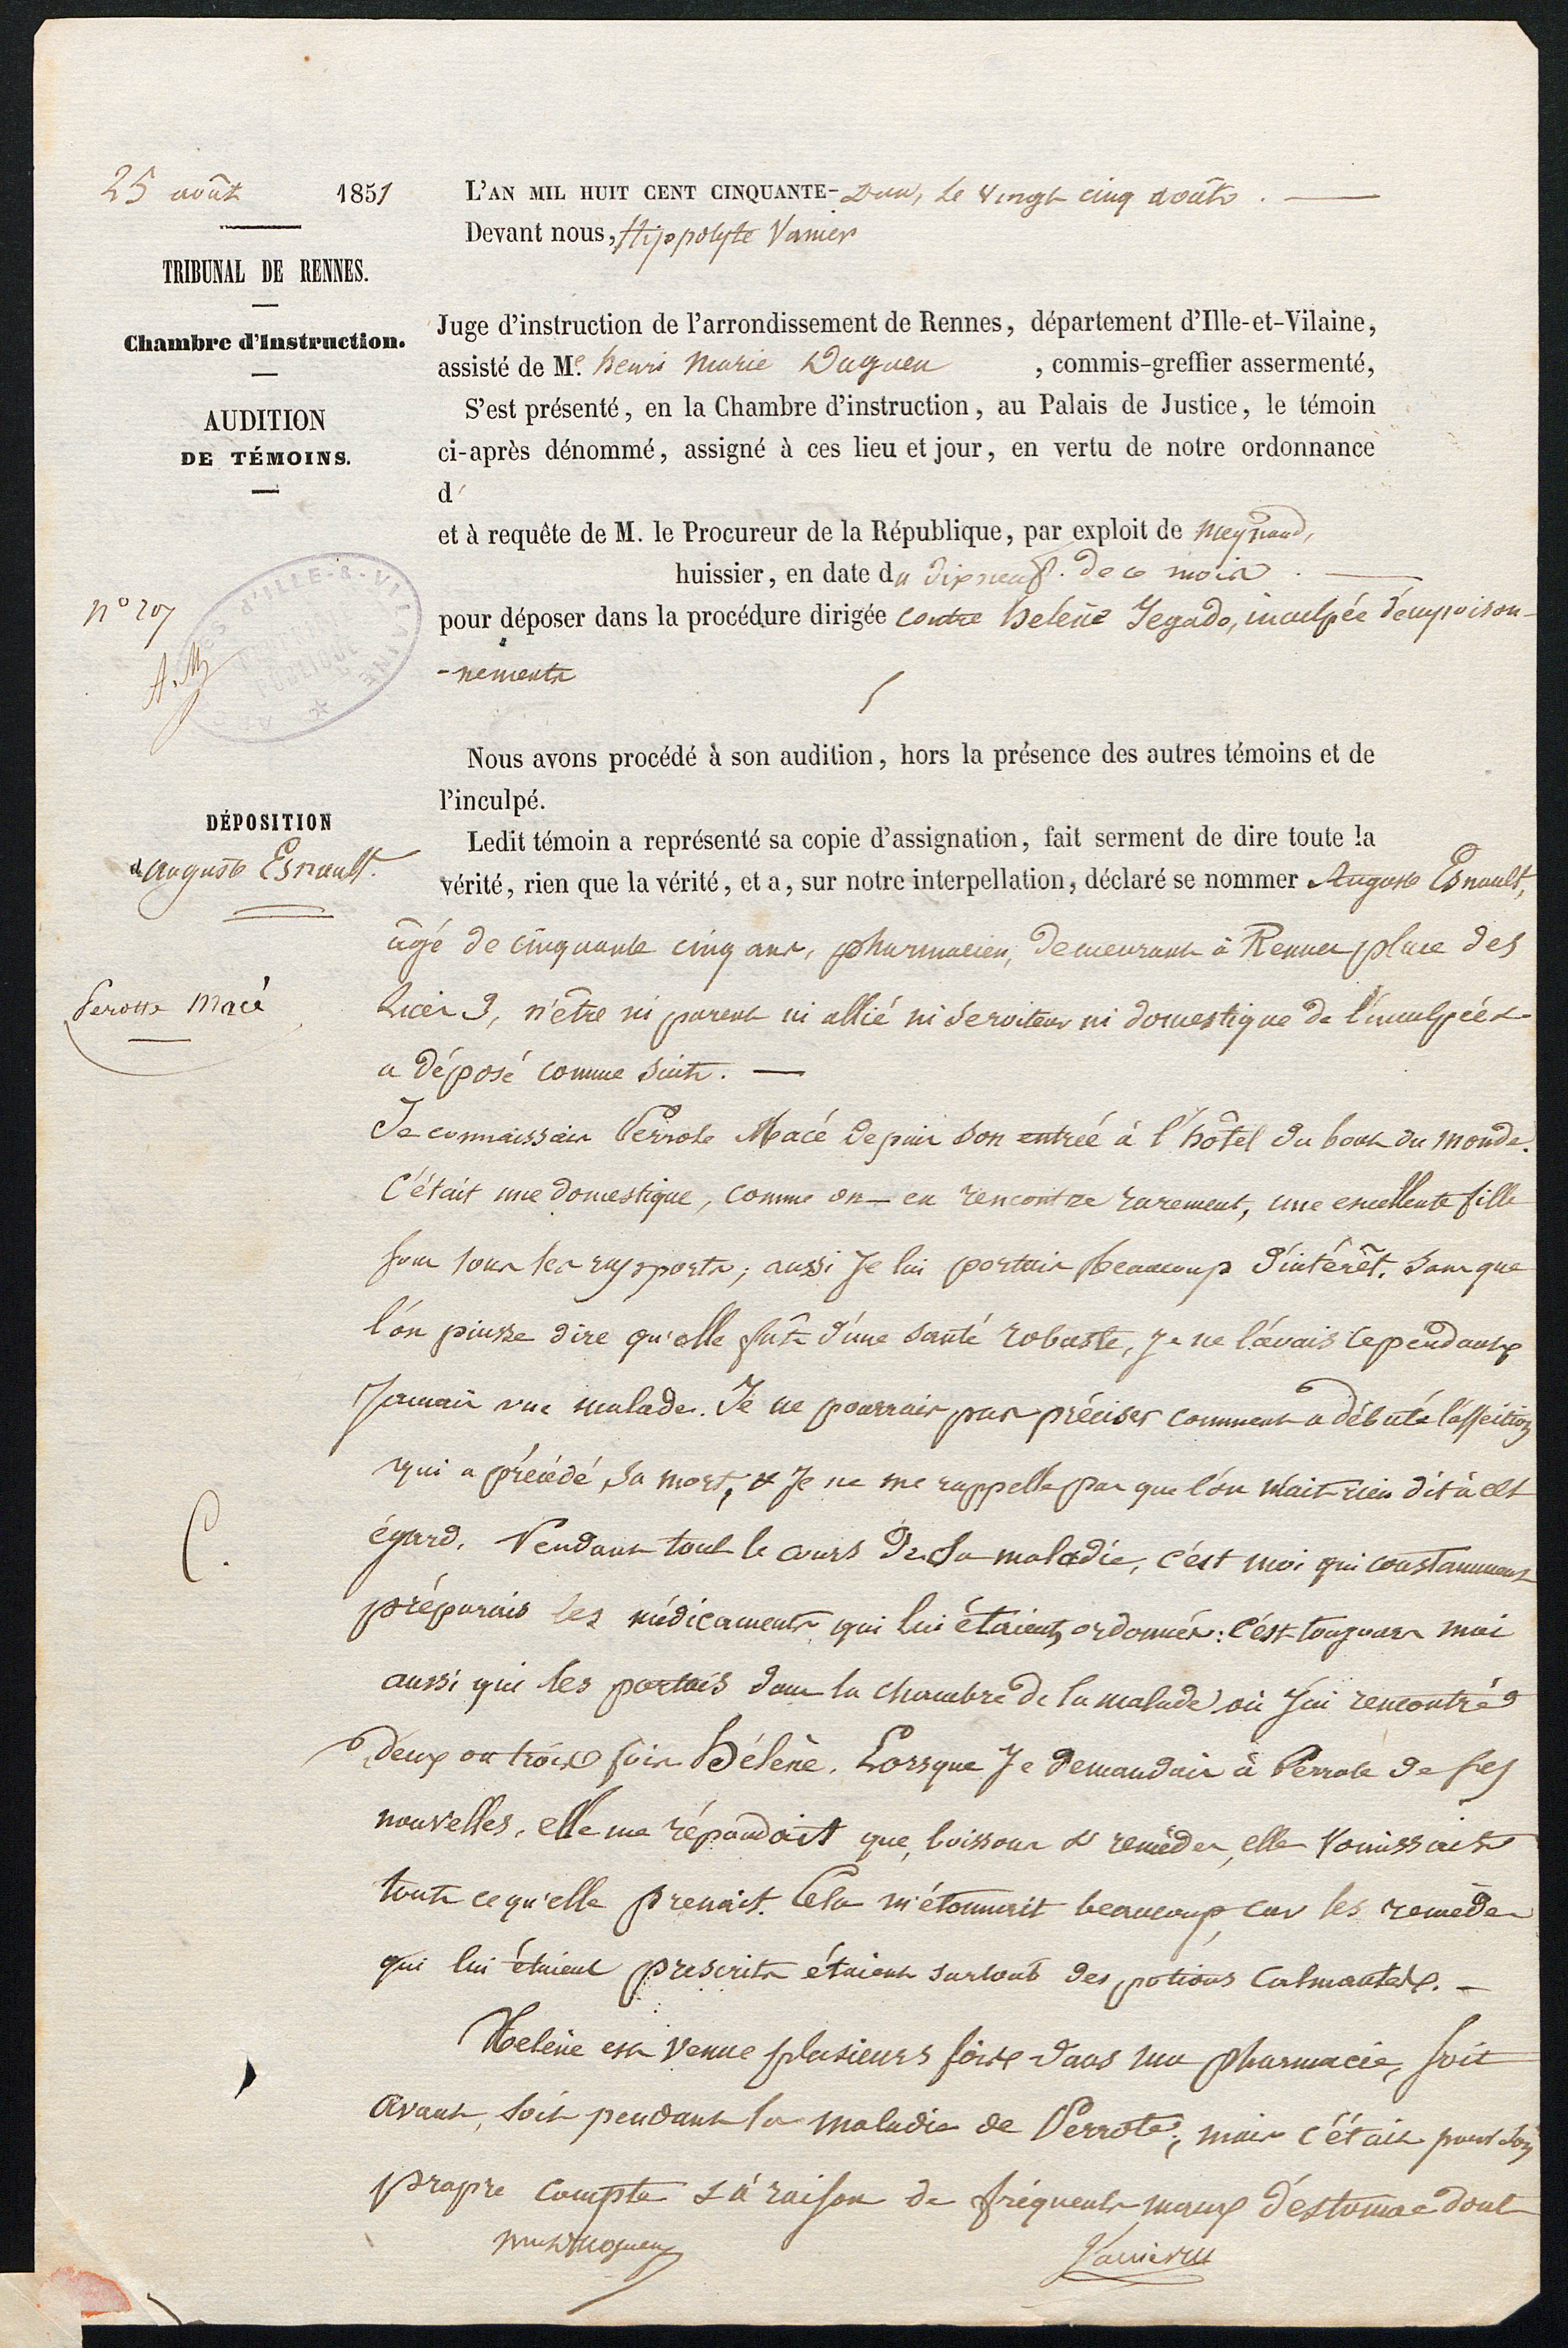 25 août 1851
TRIBUNAL DE RENNES.
Chambre d'Instruction.
AUDITION
DE TÉMOINS.
n° 207
A. M
D'ILLE-&-VILAINE
DÉPOSITION
d'auguste Esnault.
Perotte Macé
C.
L'AN MIL HUIT CENT CINQUANTE-un, le vingt cinq août.
Devant nous, Hippolyte Vanier
Juge d'instruction de l'arrondissement de Rennes, département d'Ille-et-Vilaine,
assisté de Me. henri Marie Duguen, commis-greffier assermenté,
S'est présenté, en la Chambre d'instruction, au Palais de Justice, le témoin
ci-après dénommé, assigné à ces lieu et jour, en vertu de notre ordonnance
d'
et à requête de M. le Procureur de la République, par exploit de Meynaud,
huissier, en date du dix neuf de ce mois.
pour déposer dans la procédure dirigée contre helène Jegado, inculpée d'empoison-
-nements
Nous avons procédé à son audition, hors la présence des autres témoins et de
l'inculpé.
Ledit témoin a représenté sa copie d'assignation, fait serment de dire toute la
vérité, rien que la vérité, et a, sur notre interpellation, déclaré se nommer Auguste Esnault,
âgé de cinquante cinq ans, pharmacien, demeurant à Rennes place des
Lices 3, n'être ni parent ni allié ni serviteur ni domestique de l'inculpée &
a déposé comme suit. —
Je connaissais Perrote Macé depuis son entrée à l'hôtel du bout du monde.
C'était une domestique, comme on en rencontre rarement, une excellente fille
sous tous les rapports; aussi Je lui portais beaucoup d'intérêt. Sans que
l'on puisse dire qu'elle fût d'une santé robuste, je ne l'avais cependant
Jamais vue malade. Je ne pourrais pas préciser comment a débuté l'affection
qui a précédé sa mort, & Je ne me rappelle pas que l'on m'ait rien dit à cet
égard. Pendant tout le cours de sa maladie, c'est moi qui constamment
préparais les médicaments qui lui étaient ordonnés: c'est toujours moi
aussi qui les portais dans la chambre de la malade où j'ai rencontré
deux ou trois fois Hélène. Lorsque Je demandais à Perrote de ses
nouvelles, elle me répondait que, boissons & remèdes, elle vomissait
tout ce qu'elle prenait. Cela m'étonnait beaucoup, car les remèdes
qui lui étaient prescrits étaient surtout des potions calmantes. —
Helène est venue plusieurs fois dans ma pharmacie, soit
avant, soit pendant la maladie de Perrote; mais c'était pour son
propre compte & à raison de fréquents maux d'estomac dont
Vanier